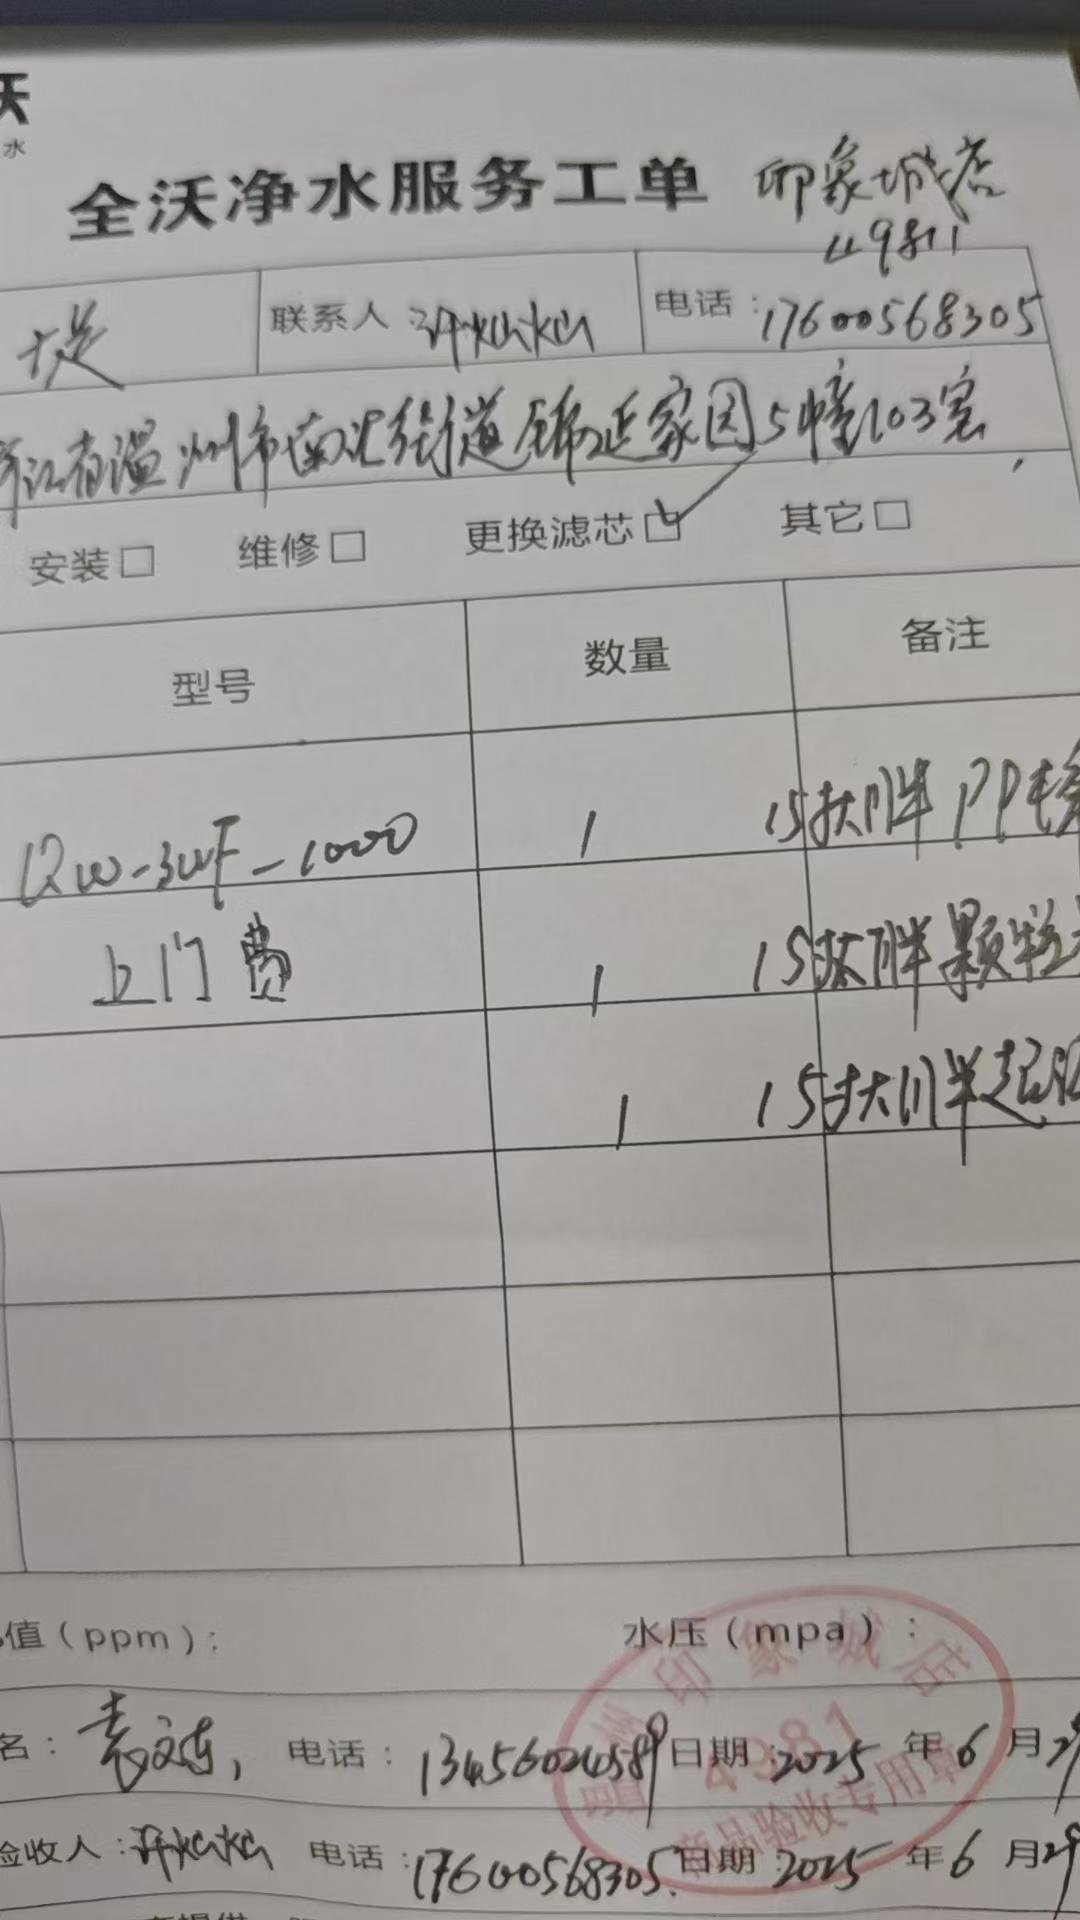 沃
水
全沃净水服务工单 印象城店
联系人: 许灿灿 电话: 17600568305
温州市南汇街道锦延家园5幢103室
安装□ 维修□ 更换滤芯□ 其它□
型号 数量 备注
QW-3WF-1000 1 15寸大胖PP
上门费 1 15寸大胖颗粒
1 15寸大胖
值(ppm): 水压(mpa):
名: 电话: 13456024589 日期: 2025年6月29
验收人: 许灿灿 电话: 17600568305 日期: 2025年6月29
温州印象城店
4981
商品验收专用章